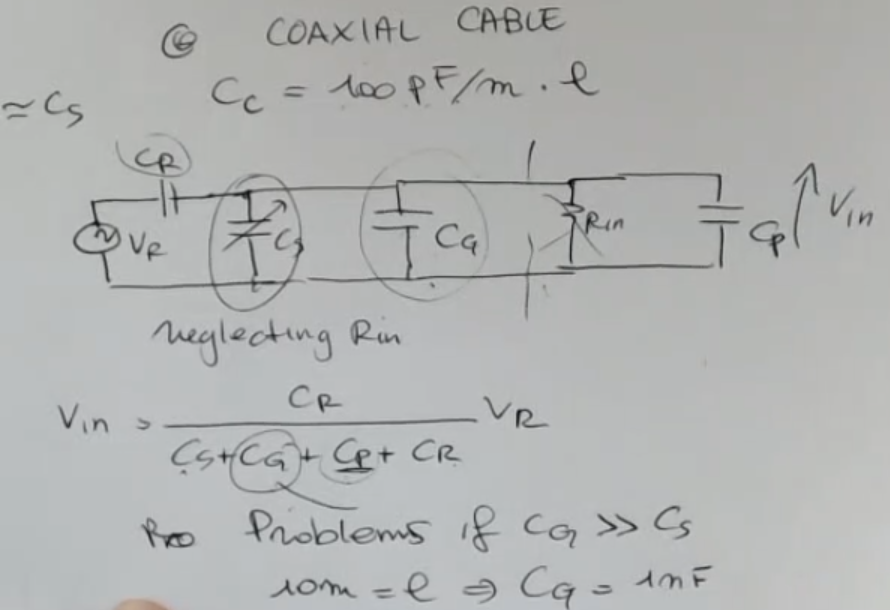 ⑥ COAXIAL CABLE
≃ CS
CC = 100 pF/m · l
CR
VR
CS
CG
Rin
CP
Vin
neglecting Rin
Vin = CR / (CS + CG + CP + CR) VR
Problems if CG >> CS
10m = l ⇒ CG = 1nF